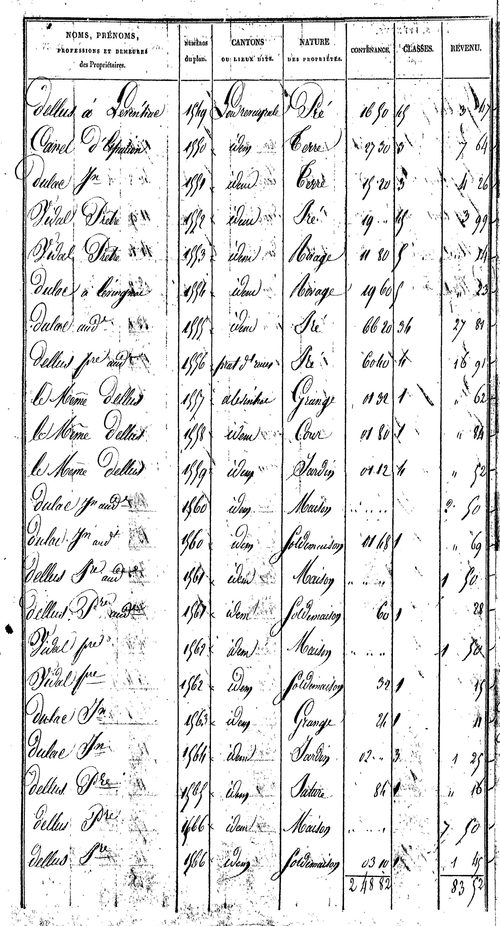 NOMS, PRÉNOMS, PROFESSIONS ET DEMEURES des Propriétaires. NUMÉROS du plan. CANTONS OU LIEUX DITS. NATURE DES PROPRIÉTÉS. CONTENANCE. CLASSES. REVENU.
dellus à 1549 Pré 16 50 45 3 47
Canel d' 1550 idem Terre 27 30 3 7 64
dulac Jn 1551 idem Terre 15 20 3 4 26
Vidal Pierre 1552 idem Pré 19 " 45 3 99
Vidal Pierre 1553 idem Rivage 11 80 5 " 14
dulac à 1554 idem Rivage 19 60 5 " 23
dulac audt 1555 idem Pré 66 20 34 27 81
dellus pre audt 1556 prat d' Pré 60 40 4 16 91
le Même dellus 1557 Grange 01 32 1 " 62
le Même dellus 1558 idem Cour 01 80 1 " 84
le Même dellus 1559 idem Jardin 01 12 4 " 52
dulac Jn audt 1560 idem Maison 50
dulac Jn audt 1560 idem Soldemaison 01 68 1 " 69
dellus Pre audt 1561 idem Maison 1 50
dellus Pre audt 1561 idem Soldemaison 60 1 28
Vidal pre 1562 idem Maison 1 50
Vidal pre 1562 idem Soldemaison 32 1 15
dulac Jn 1563 idem Grange 24 1 11
dulac Jn 1564 idem Jardin 02 " 3 1 25
dellus Pre 1565 idem Pature 84 1 " 16
dellus Pre 1566 idem Maison 7 50
dellus Pre 1566 idem Soldemaison 03 10 1 1 45
2 48 82 83 52